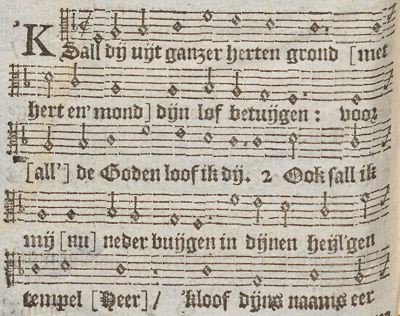 'K Sall dij uijt ganzer herten grond [met
hert en' mond] dijn lof betuijgen : voor
[all'] de Goden loof ik dij. 2 Ook sall ik
mij [nu] neder buijgen in dijnen heijl'gen
tempel [Heer] / 'kloof dijns naams eer